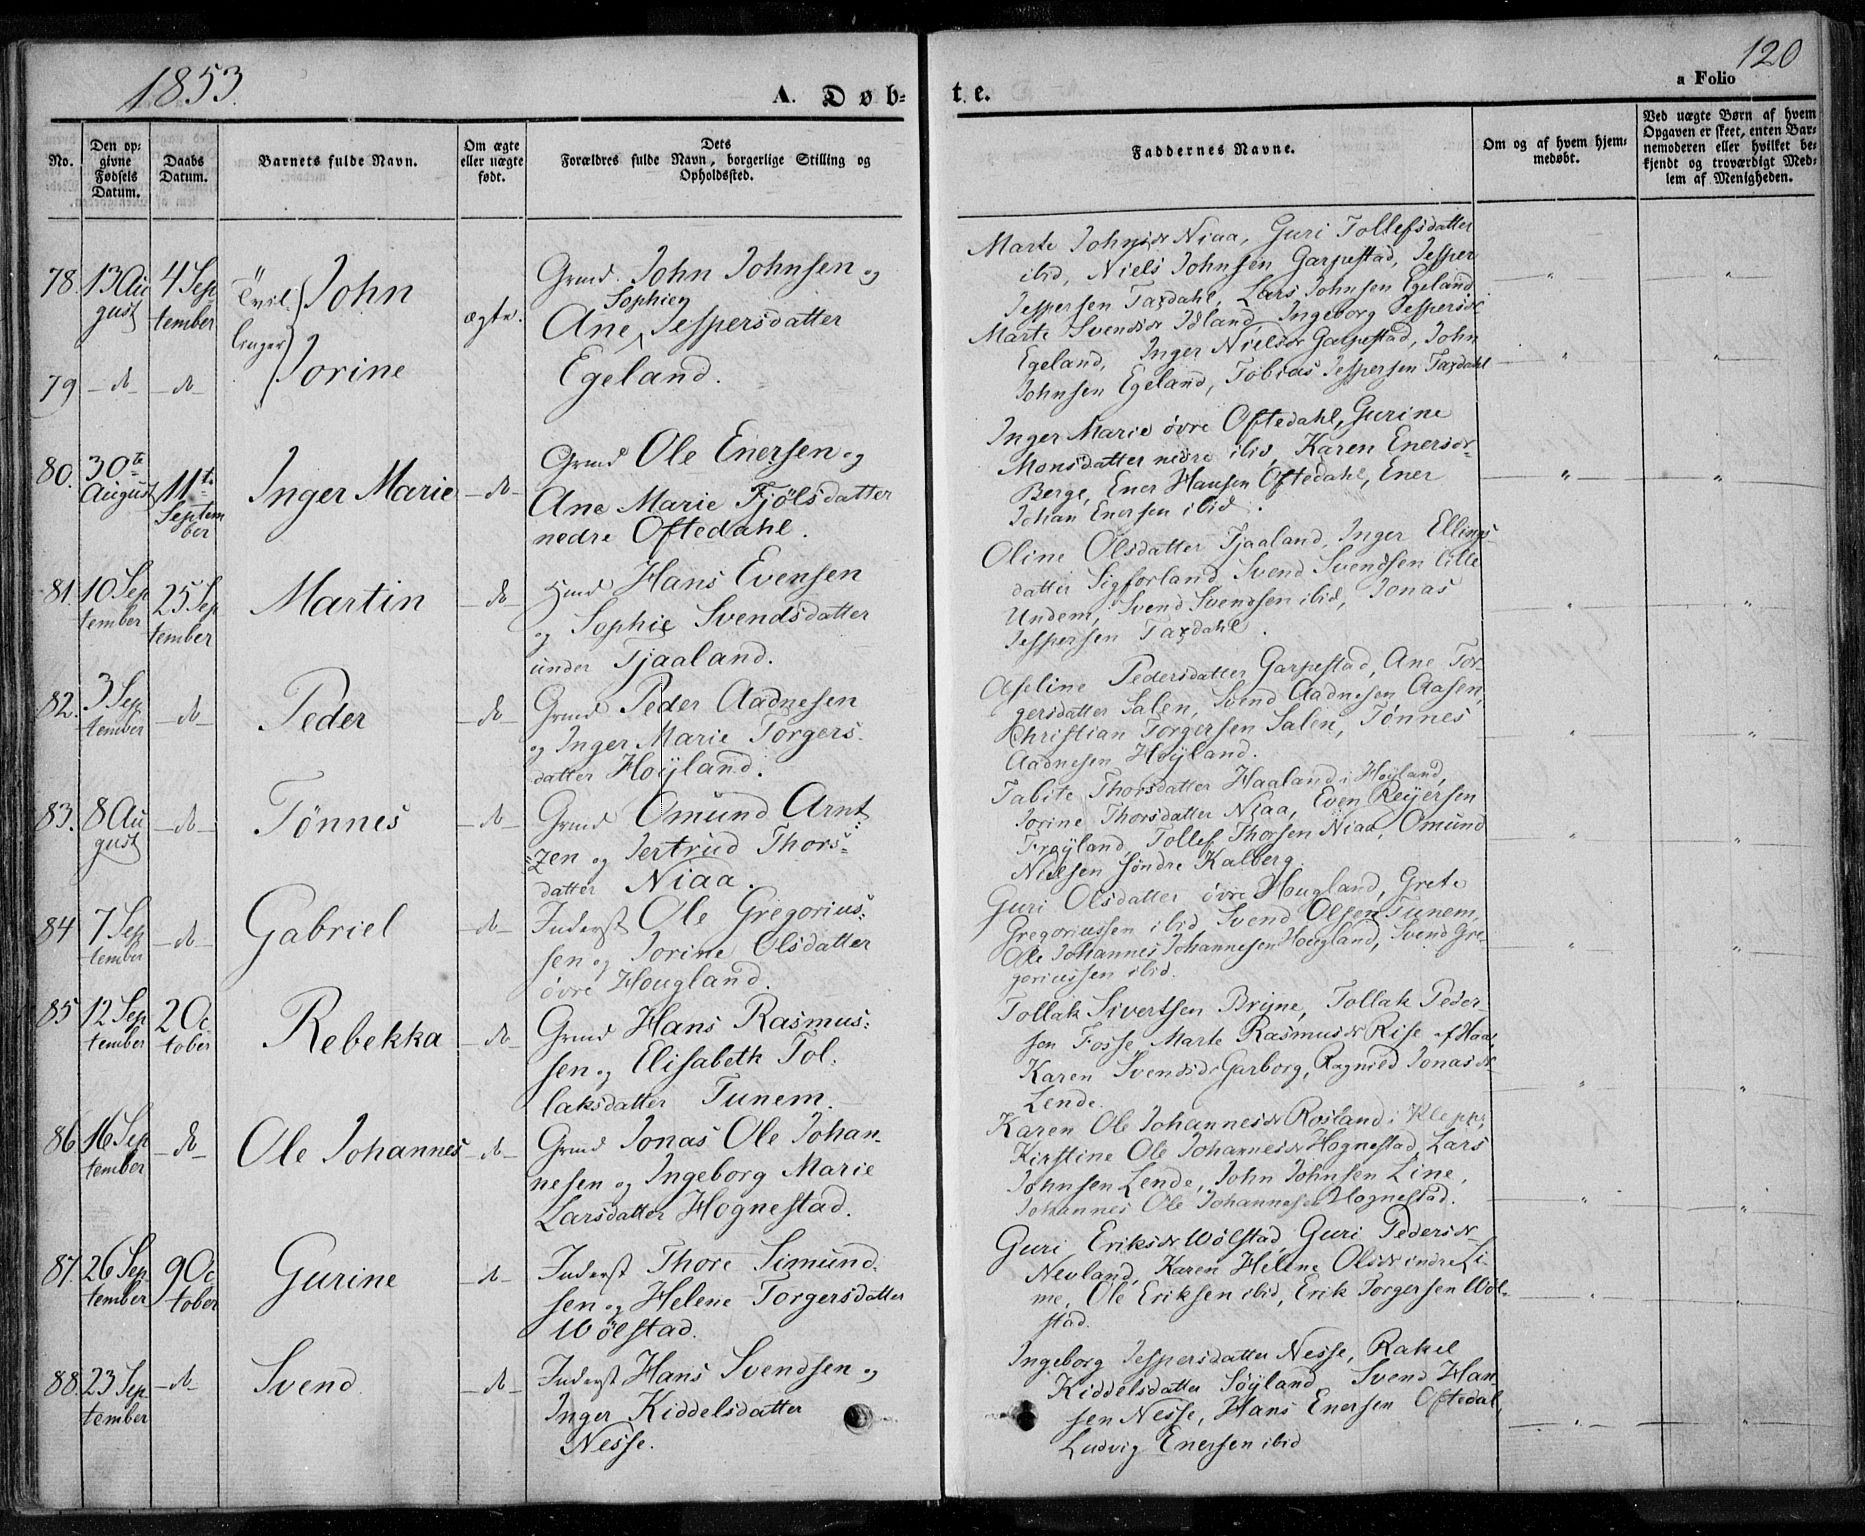 1853.
A. Døb-
te.
120
a Folio
No.
Den op-
givne
Fødsels
Datum.
Daabs
Datum.
Barnets fulde Navn.
Om ægte
eller uægte
født.
Dets
Forældres fulde Navn, borgerlige Stilling og
Opholdssted.
Faddernes Navne.
Om og af hvem hjem-
medøbt.
Ved uægte Børn af hvem
Opgaven er skeet, enten Bar-
nemoderen eller hvilket be-
kjendt og troværdigt Med-
lem af Menigheden.
78. 13 Au
gust
4 Sep
tember
Tvil
linger
John
ægte.
Grmd. John Johnsen og
Sophie
Ane Jespersdatter
Egeland.
Marte Johnsdr Niaa, Guri Tollefsdatter
ibid, Niels Johnsen Garpestad, Jesper
Jespersen Taxdahl, Lars Johnsen Egeland.
79 - do - - do -
Jorine
Marte Svendsdr Idland, Ingeborg Jespersdr
Egeland, Inger Nielsdr Garpestad, John
Johnsen Egeland, Tobias Jespersen Taxdahl
80. 30te
August
11te
Septem
ber
Inger Marie
- do -
Grmd Ole Enersen og
Ane Marie Fjølsdatter
nedre Oftedahl.
Inger Marie øvre Oftedahl, Gurine
Monsdatter nedre ibid, Karen Enersdr
Berge, Ener Hansen Oftedahl, Ener
Johan Enersen ibid.
81. 10 Sep
tember
25 Sep
tember
Martin
- do -
Hmd Hans Evensen
og Sophie Svendsdatter
under Tjaaland.
Oline Olsdatter Tjaaland, Inger Ellings
datter Sigforland, Svend Svendsen lille
Undem, Svend Svendsen ibid, Jonas
Jespersen Taxdahl.
82. 3 Sep
tember
- do -
Peder
- do -
Grmd Peder Aadnesen
og Inger Marie Torgers-
datter Høyland.
Aseline Pedersdatter Garpestad, Ane Tor
gersdatter Salen, Svend Aadnesen Aasen,
Christian Torgersen Salen, Tønnes
Aadnesen Høyland.
83. 8 Au
gust
- do -
Tønnes
- do -
Grmd Omund Arnt
zen og Jertrud Thors-
datter Niaa.
Tabite Thorsdatter Haaland i Høyland,
Jorine Thorsdatter Niaa, Even Reyersen
Frøyland, Tollef Thorsen Niaa, Omund
Nielsen søndre Kalberg.
84 7 Sep
tember
- do -
Gabriel
- do -
Inderst Ole Gregorius-
sen og Jorine Olsdatter
øvre Hougland.
Guri Olsdatter øvre Hougland, Grete
Gregoriussen ibid Svend Olsen Tunem,
Ole Johannes Johannesen Hougland, Svend Gre-
goriussen ibid.
85 12 Sep
tember
2 Oc
tober
Rebekka
- do -
Grmd Hans Rasmus-
sen og Elisabeth Tol-
laksdatter Tunem.
Tollak Sivertsen Bryne, Tollak Peder-
sen Fosse, Marte Rasmusdr Rise af Haa,
Karen Svendsdr Garborg, Ragnild Jonasdr
Lende.
86 16 Sep
tember
- do -
Ole Johannes
- do -
Grmd Jonas Ole Johan-
nesen og Ingeborg Marie
Larsdatter Hognestad.
Karen Ole Johannesdr Rosland i Klepp,
Kirstine Ole Johannesdr Hognestad, Lars
Johnsen Lende, John Johnsen Line,
Johannes Ole Johannesen Hognestad.
87. 26 Sep
tember
9 Oc
tober
Gurine
- do -
Inderst Thore Simund-
sen og Helene Torgersdatter
Wølstad.
Guri Eriksdr Wølstad, Guri Pedersdr
Nevland, Karen Helene Olsdr indre Li-
me, Ole Eriksen ibid, Erik Torgersen Wøl-
stad.
88. 23 Sep
tember
- do -
Svend
- do -
Inderst Hans Svendsen og
Inger Kiddelsdatter
Nesse.
Ingeborg Jespersdatter Nesse, Rakel
Kiddelsdatter Søyland Svend Han
sen Nesse, Hans Enersen Oftedal,
Ludvig Enersen ibid